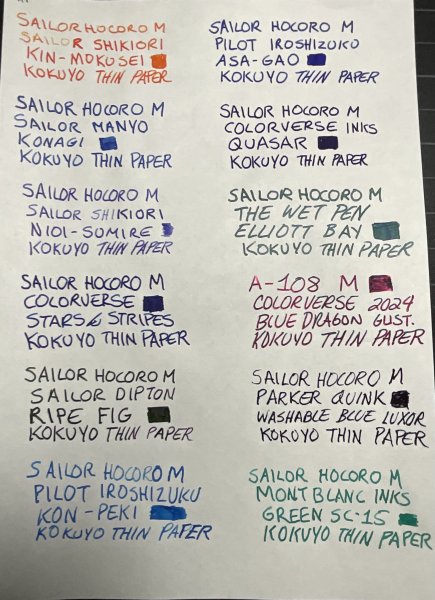 SAILOR HOCORO M
SAILOR SHIKIORI
KIN-MOKUSEI
KOKUYO THIN PAPER
SAILOR HOCORO M
SAILOR MANYO
KONAGI
KOKUYO THIN PAPER
SAILOR HOCORO M
SAILOR SHIKIORI
NIOI-SUMIRE
KOKUYO THIN PAPER
SAILOR HOCORO M
COLORVERSE
STARS & STRIPES
KOKUYO THIN PAPER
SAILOR HOCORO M
SAILOR DIPTON
RIPE FIG
KOKUYO THIN PAPER
SAILOR HOCORO M
PILOT IROSHIZUKU
KON-PEKI
KOKUYO THIN PAPER
SAILOR HOCORO M
PILOT IROSHIZUKU
ASA-GAO
KOKUYO THIN PAPER
SAILOR HOCORO M
COLORVERSE INKS
QUASAR
KOKUYO THIN PAPER
SAILOR HOCORO M
THE WET PEN
ELLIOTT BAY
KOKUYO THIN PAPER
A-108 M
COLORVERSE 2024
BLUE DRAGON GUST.
KOKUYO THIN PAPER
SAILOR HOCORO M
PARKER QUINK
WASHABLE BLUE LUXOR
KOKUYO THIN PAPER
SAILOR HOCORO M
MONTBLANC INKS
GREEN SC-15
KOKUYO THIN PAPER